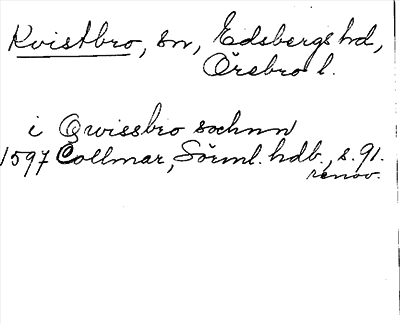 Kvistbro, sn, Edsbergs hd,
Örebro l.
i Qwissbro sochnn
1597 Collmar, Sörml. hdb., s. 91.
renov.